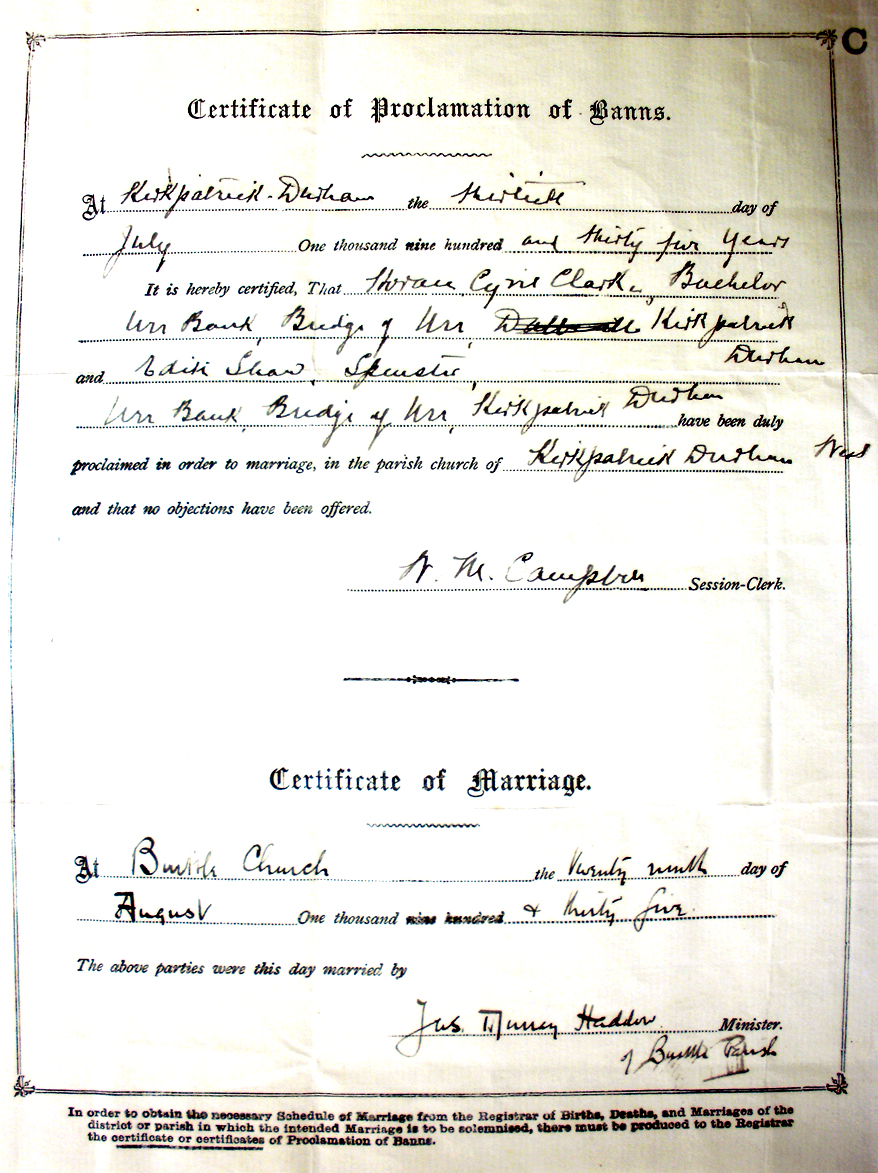 C
Certificate of Proclamation of Banns.
At Kirkpatrick-Durham the thirtieth day of
July One thousand nine hundred and thirty five Years
It is hereby certified, That Horace Cyril Clark, Bachelor
Urr Bank, Bridge of Urr, Kirkpatrick
Durham
and Edith Shaw, Spinster,
Urr Bank, Bridge of Urr, Kirkpatrick Durham have been duly
proclaimed in order to marriage, in the parish church of Kirkpatrick Durham West
and that no objections have been offered.
W. M. Campbell Session-Clerk.
Certificate of Marriage.
At Buittle Church the twenty ninth day of
August One thousand nine hundred & thirty five.
The above parties were this day married by
Jas. Murray Haddow Minister.
of Buittle Parish
In order to obtain the necessary Schedule of Marriage from the Registrar of Births, Deaths, and Marriages of the
district or parish in which the intended Marriage is to be solemnised, there must be produced to the Registrar
the certificate or certificates of Proclamation of Banns.